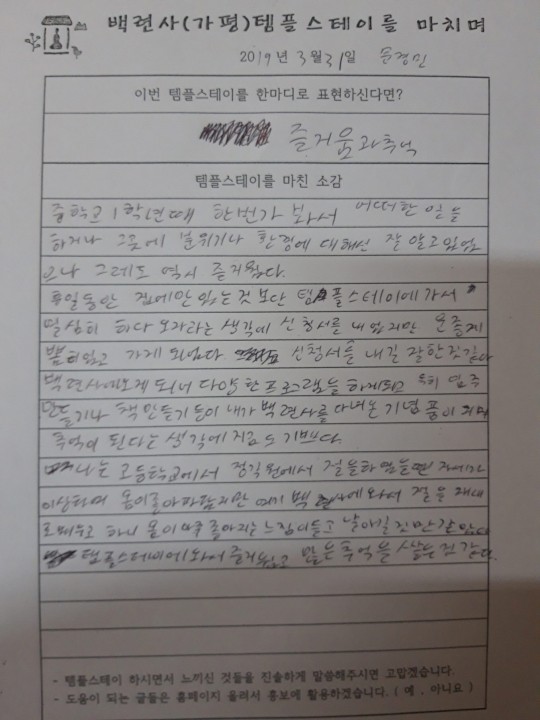 백련사(가평)템플스테이를 마치며
2019년 3월 31일 윤경민
이번 템플스테이를 한마디로 표현하신다면?
즐거움과추억
템플스테이를 마친 소감
중학교 1학년때 한번가 봐서 어떠한 일을
하거나 그곳에 분위기나 환경에 대해선 잘 알고있었
으나 그레도 역시 즐거웠다.
휴일동안 집에만 있는것 보단 템플스테이에 가서
열심히 하다 오자라는 생각에 신청서를 내었지만 운좋게
뽑히었고 가게 되었다 신청서를 내길 잘한것같다
백련사에오게 되서 다양한프로그램을 하게되고 특히 염주
만들기나 책만들기 등이 내가 백련사를 다녀온 기념품이 되며
추억이 된다는 생각에 지금도 기쁘다.
나는 고등학교에서 정각원에서 절을하였을땐 자세가
이상하여 몸이 안파지만 여기 백련사에와서 절을 제대
로배우고 하니 몸이 좋아지는 느낌이들고 날아갈 것만같았다
템플스테이에와서 즐거웠고 많은추억을 쌓은것 같다.
- 템플스테이 하시면서 느끼신 것들을 진솔하게 말씀해주시면 고맙겠습니다.
- 도움이 되는 글들은 홈페이지 올려서 홍보에 활용하겠습니다. ( 예 , 아니요 )